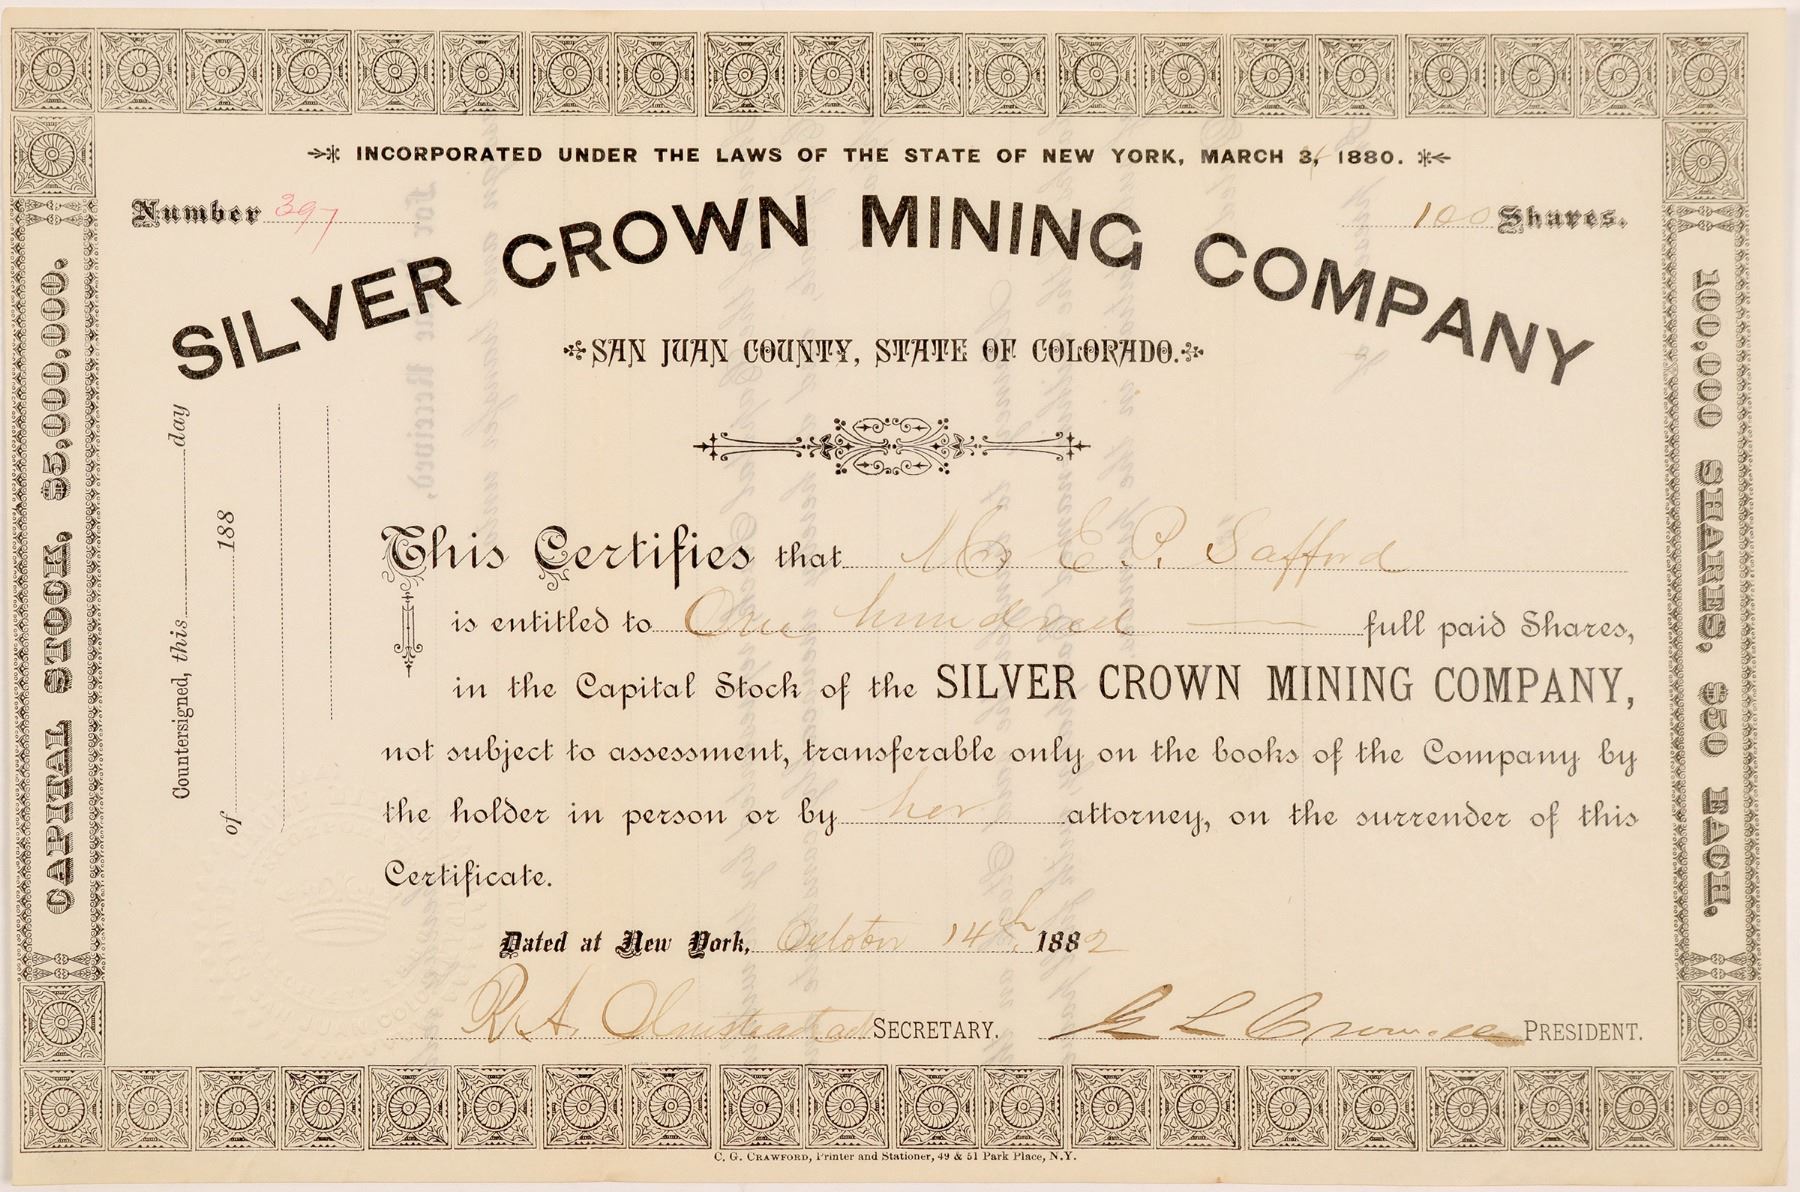 INCORPORATED UNDER THE LAWS OF THE STATE OF NEW YORK, MARCH 3, 1880.
Number 397
100 Shares.
SILVER CROWN MINING COMPANY
SAN JUAN COUNTY, STATE OF COLORADO.
CAPITAL STOCK, $5,000,000.
100,000 SHARES, $50 EACH.
Countersigned, this day
of 188
This Certifies that Mrs E. P. Safford
is entitled to One hundred full paid Shares,
in the Capital Stock of the SILVER CROWN MINING COMPANY,
not subject to assessment, transferable only on the books of the Company by
the holder in person or by her attorney, on the surrender of this
Certificate.
Dated at New York, October 14th, 1882
R. A. SECRETARY.
G L PRESIDENT.
C. G. CRAWFORD, Printer and Stationer, 49 & 51 Park Place, N.Y.